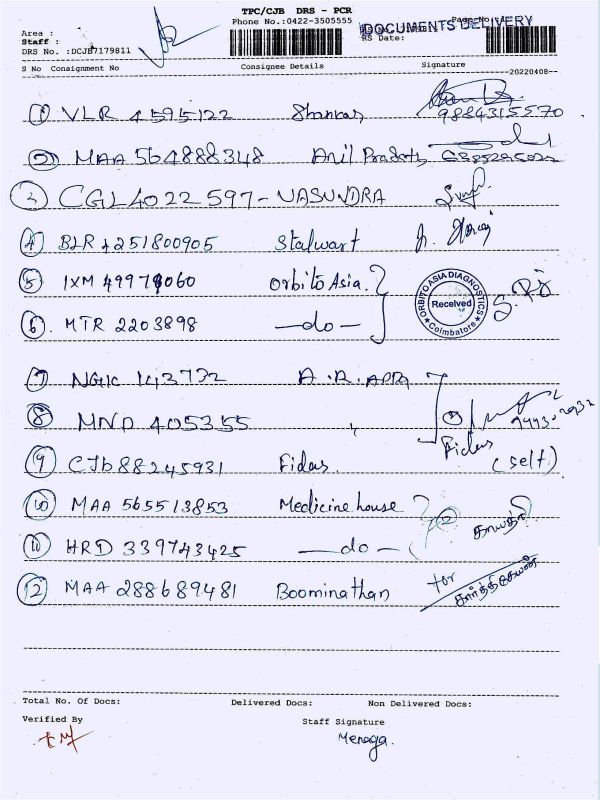 TPC/CJB DRS - PCR
Phone No.:0422-3505555
DOCUMENTS DELIVERY
Area :
Staff :
RS Date:
DRS No. :DCJB7179811
S No Consignment No Consignee Details Signature
20220408
1 VLR 4595122 Shankar 9884315570
2 MAA 564888348 Anil Prakash
3 CGL4022597 - VASUNDRA
4 BLR 4251800905 Stalwart
5 IXM 49979060 Orbito Asia.
ORBITO ASIA DIAGNOSTICS Received Coimbatore
6. MTR 2203898 —do—
7 143772 A.R.
8 MND 405355 "
Fidus
9 CJB 88245931 Fidus. (self)
10 MAA 565513853 Medicine house
காயத்ரி
11 HRD 339743425 —do—
12 MAA 288689481 Boominathan for கார்த்திகேயன்
Total No. Of Docs: Delivered Docs: Non Delivered Docs:
Verified By Staff Signature
Menaga.